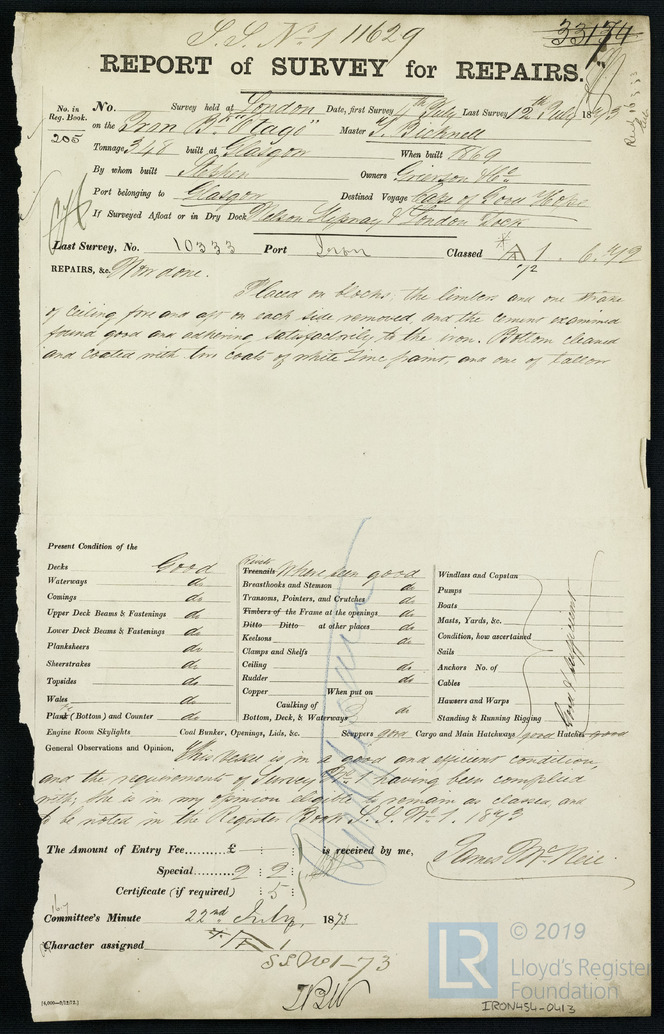 S.S. No 1 11629
33174
REPORT of SURVEY for REPAIRS.
No. in Reg. Book. No. Survey held at London Date, first Survey 4th July Last Survey 12th July 1873
205 on the Iron Bk "Otago" Master J. Bicknell
Tonnage 348 built at Glasgow When built 1869
By whom built Stephen Owners Grierson & Co
Port belonging to Glasgow Destined Voyage Cape of Good Hope
If Surveyed Afloat or in Dry Dock Nelson Slipway & London Dock
Last Survey, No. 10333 Port Iron Classed A 1. 6.72
1/2
REPAIRS, &c. Now done.
Placed on blocks, the limbers and one strake
of ceiling fore and aft on each side removed, and the cement examined
found good and adhering satisfactorily to the iron. Bottom cleaned
and coated with two coats of white zinc paint and one of tallow
Present Condition of the
Decks Good
Waterways do
Comings do
Upper Deck Beams & Fastenings do
Lower Deck Beams & Fastenings do
Planksheers do
Sheerstrakes do
Topsides do
Wales do
Plank (Bottom) and Counter do
Engine Room Skylights
Rivets
Treenails Where seen good
Breasthooks and Stemson do
Transoms, Pointers, and Crutches do
Timbers of the Frame at the openings do
Ditto Ditto at other places do
Keelsons do
Clamps and Shelfs
Ceiling do
Rudder do
Copper When put on
Caulking of
Bottom, Deck, & Waterways do
Windlass and Capstan
Pumps
Boats
Masts, Yards, &c.
Condition, how ascertained
Sails
Anchors No. of
Cables
Hawsers and Warps
Standing & Running Rigging
Good & sufficient
Coal Bunker, Openings, Lids, &c. Scuppers good Cargo and Main Hatchways good Hatches good
General Observations and Opinion, This vessel is in a good and efficient condition
and the requirements of Survey No 1 having been complied
with; she is in my opinion eligible to remain as classed, and
to be noted in the Register Book S.S. No. 1. 1873
The Amount of Entry Fee......... £ : : is received by me,
Special...... 2 : 2 :
Certificate (if required) : 5 :
James McNeil
Committee's Minute 22nd July 1873
Character assigned A 1
S S No 1-73
[4,000—8/12/72.]
© 2019
LR
Lloyd's Register
Foundation
IRON454-0413